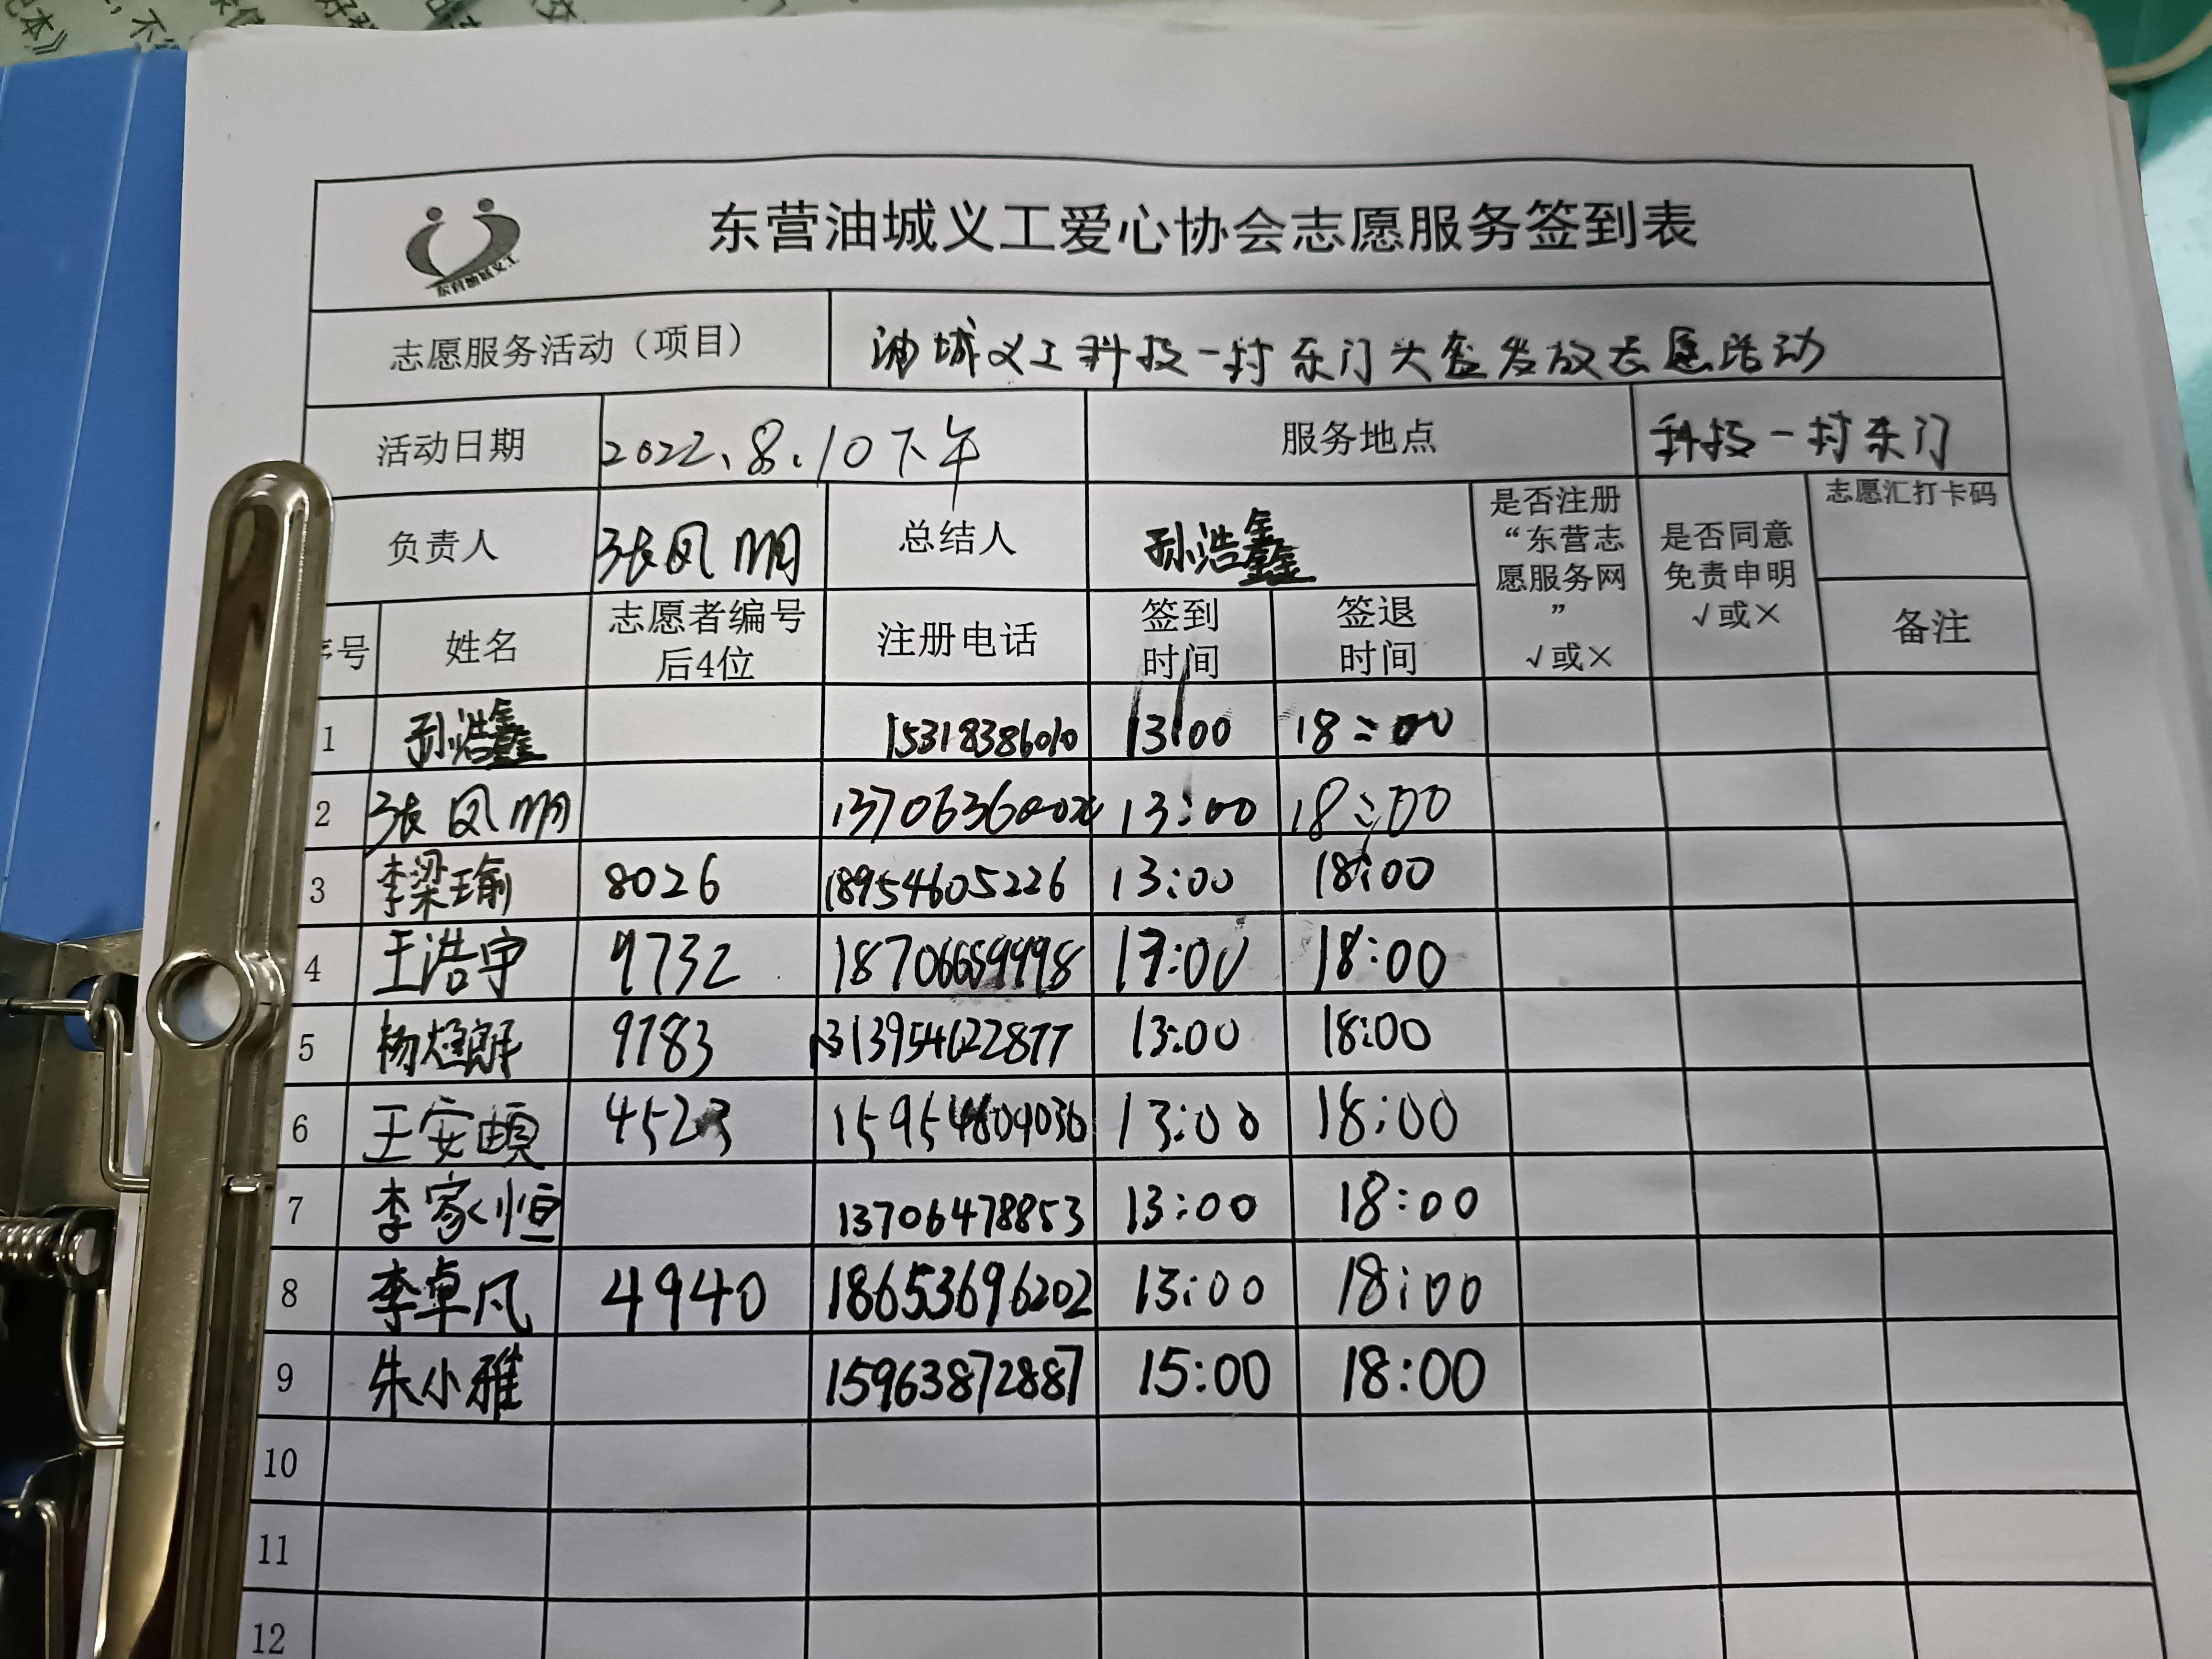 东营油城义工爱心协会志愿服务签到表
东营油城义工
志愿服务活动（项目） 油城义工科技一村东门头盔发放志愿活动
活动日期 2022.8.10下午 服务地点 科技一村东门
负责人 张凤明 总结人 孙浩鑫 是否注册“东营志愿服务网” √或× 是否同意免责申明 √或× 志愿汇打卡码
序号 姓名 志愿者编号后4位 注册电话 签到时间 签退时间 备注
1 孙浩鑫 15318386010 13:00 18:00
2 张凤明 13:00 18:00
3 李梁瑜 8026 18954605226 13:00 18:00
4 王浩宇 9732 13:00 18:00
5 杨 9783 13954622877 13:00 18:00
6 王安 4523 15954809036 13:00 18:00
7 李家恒 13706478853 13:00 18:00
8 李卓凡 4940 18653696202 13:00 18:00
9 朱小雅 15963872887 15:00 18:00
10
11
12